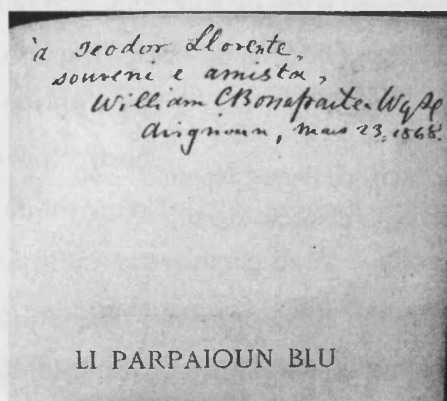 à Teodor Llorente,
souveni e amista,
William C Bonaparte-Wyse
Avignoun, mars 23, 1868.
LI PARPAIOUN BLU